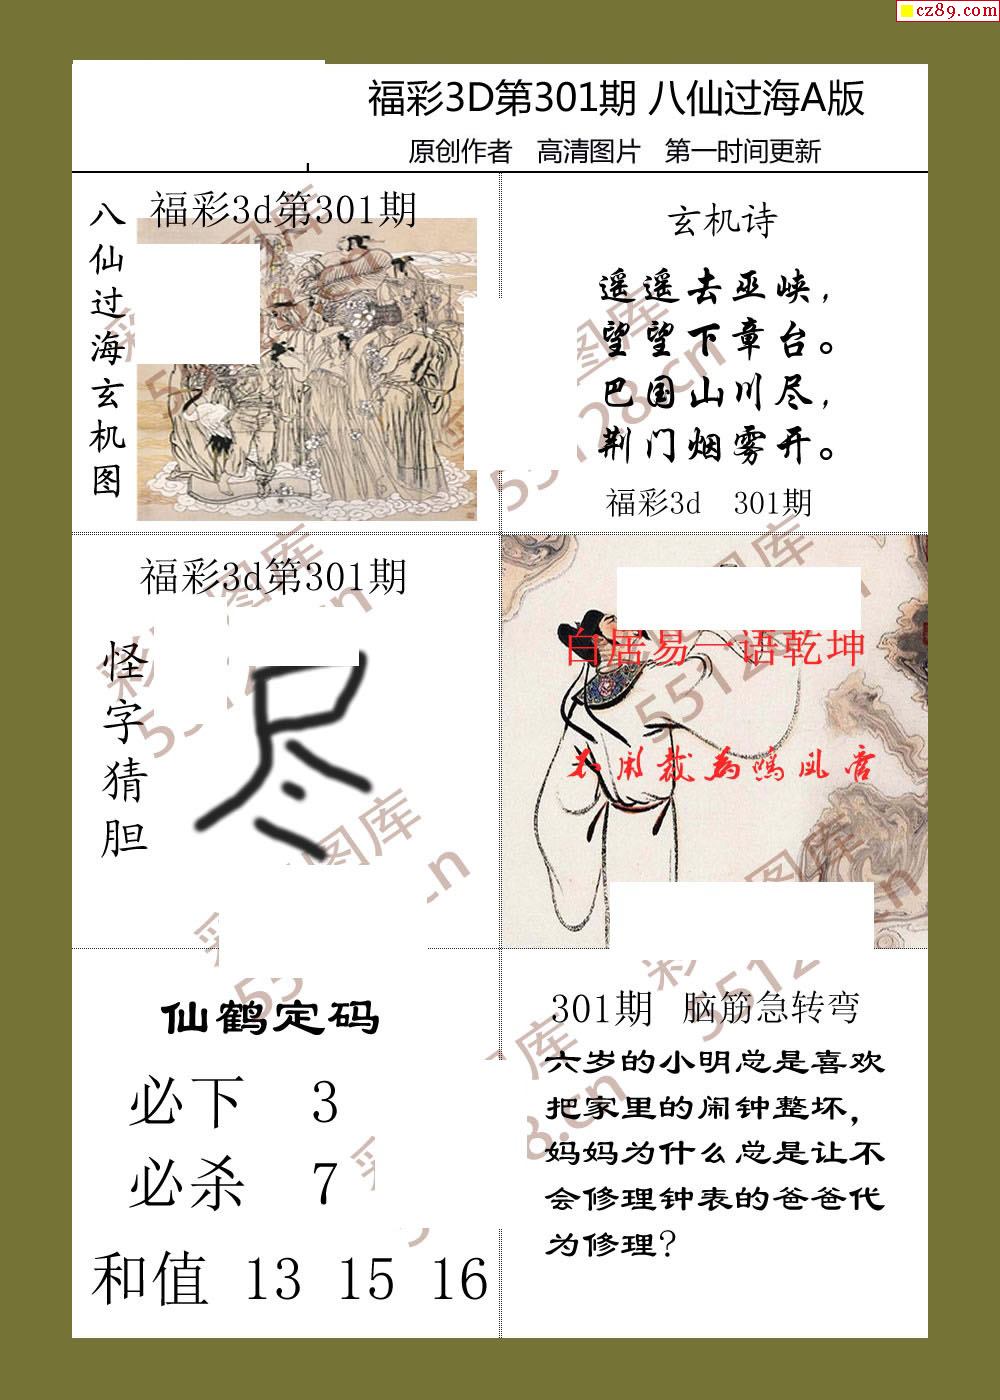 cz89.com
福彩3D第301期 八仙过海A版
原创作者 高清图片 第一时间更新
八仙过海玄机图
福彩3d第301期
玄机诗
遥遥去巫峡，
望望下章台。
巴国山川尽，
荆门烟雾开。
福彩3d 301期
福彩3d第301期
怪字猜胆
尽
白居易一语乾坤
不用裁为鸣凤管
仙鹤定码
必下 3
必杀 7
和值 13 15 16
301期 脑筋急转弯
六岁的小明总是喜欢
把家里的闹钟整坏，
妈妈为什么总是让不
会修理钟表的爸爸代
为修理？